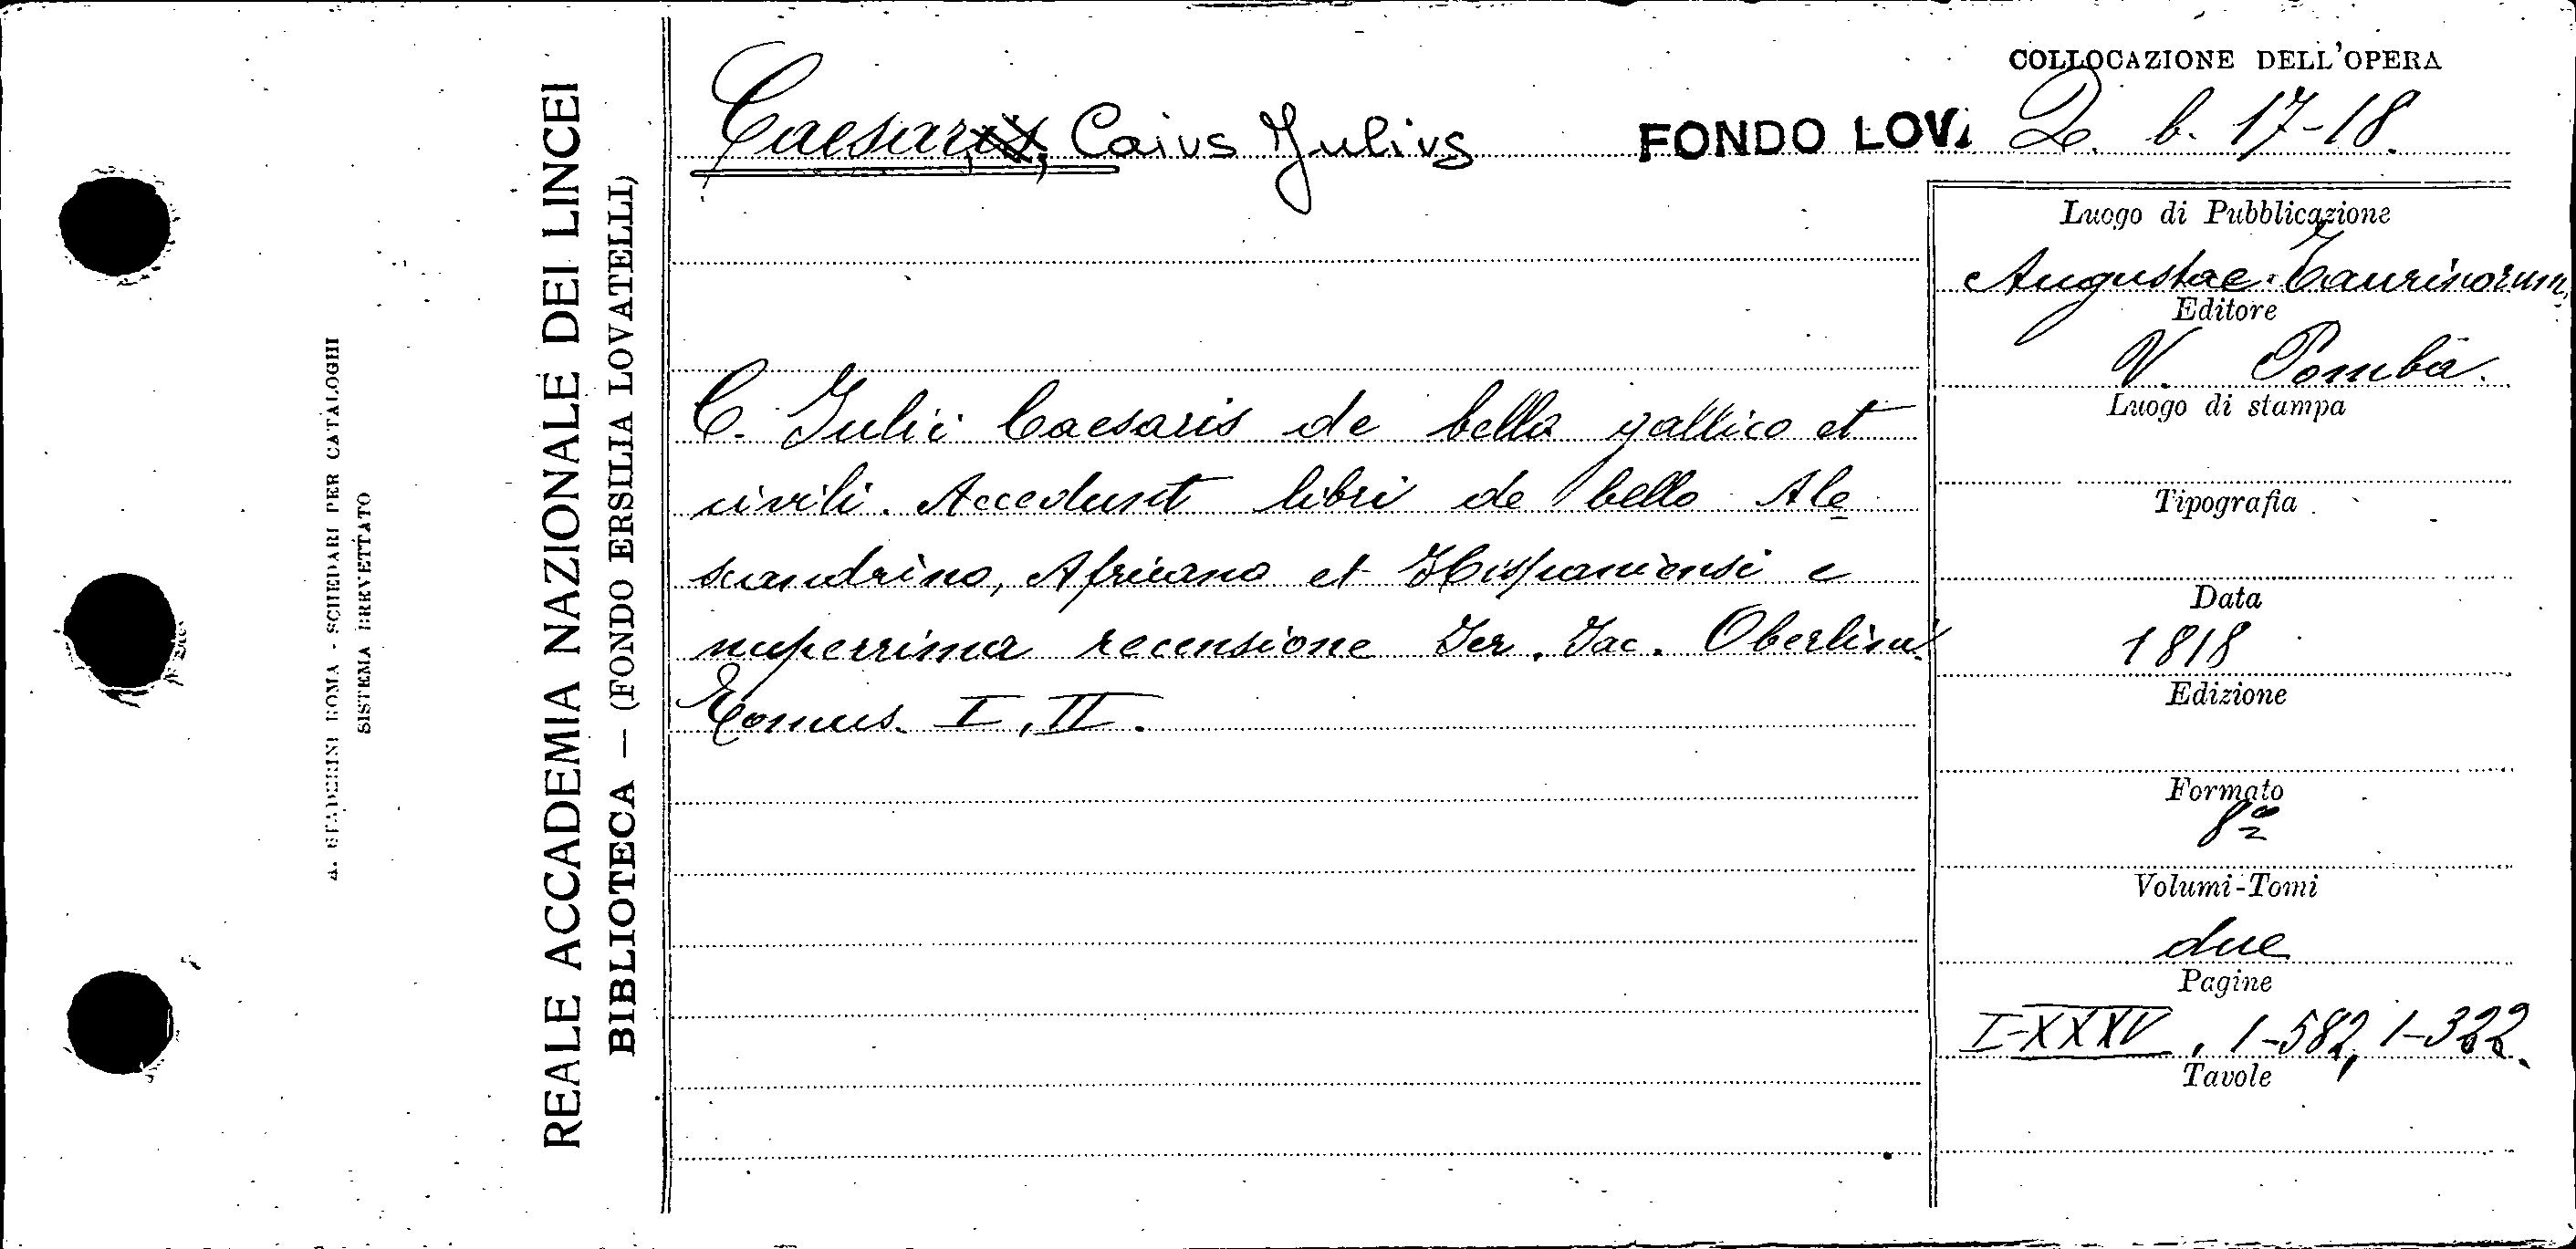 COLLOCAZIONE DELL'OPERA
Caesar, Caius Julius
FONDO LOV. Q. b. 17-18.
Luogo di Pubblicazione
Augustae Taurinorum,
Editore
V. Pomba.
Luogo di stampa
Tipografia
Data
1818
Edizione
Formato
8º
Volumi-Tomi
due
Pagine
I-XXXV, 1-582, 1-322.
Tavole
C. Julii Caesaris de bello gallico et
civili. Accedunt libri de bello Ale
scandrino, Africano et Hispaniensi e
nuperrima recensione Jer. Jac. Oberlini.
Tomus. I, II.
REALE ACCADEMIA NAZIONALE DEI LINCEI
BIBLIOTECA — (FONDO ERSILIA LOVATELLI)
ROMA - SCHEDARI PER CATALOGHI
SISTEMA BREVETTATO